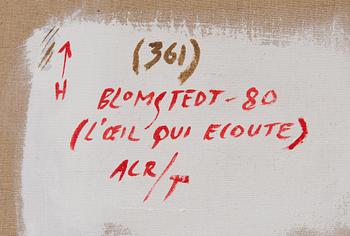 (361)
H
BLOMSTEDT-80
(L'ŒIL QUI ECOUTE)
ACR/T